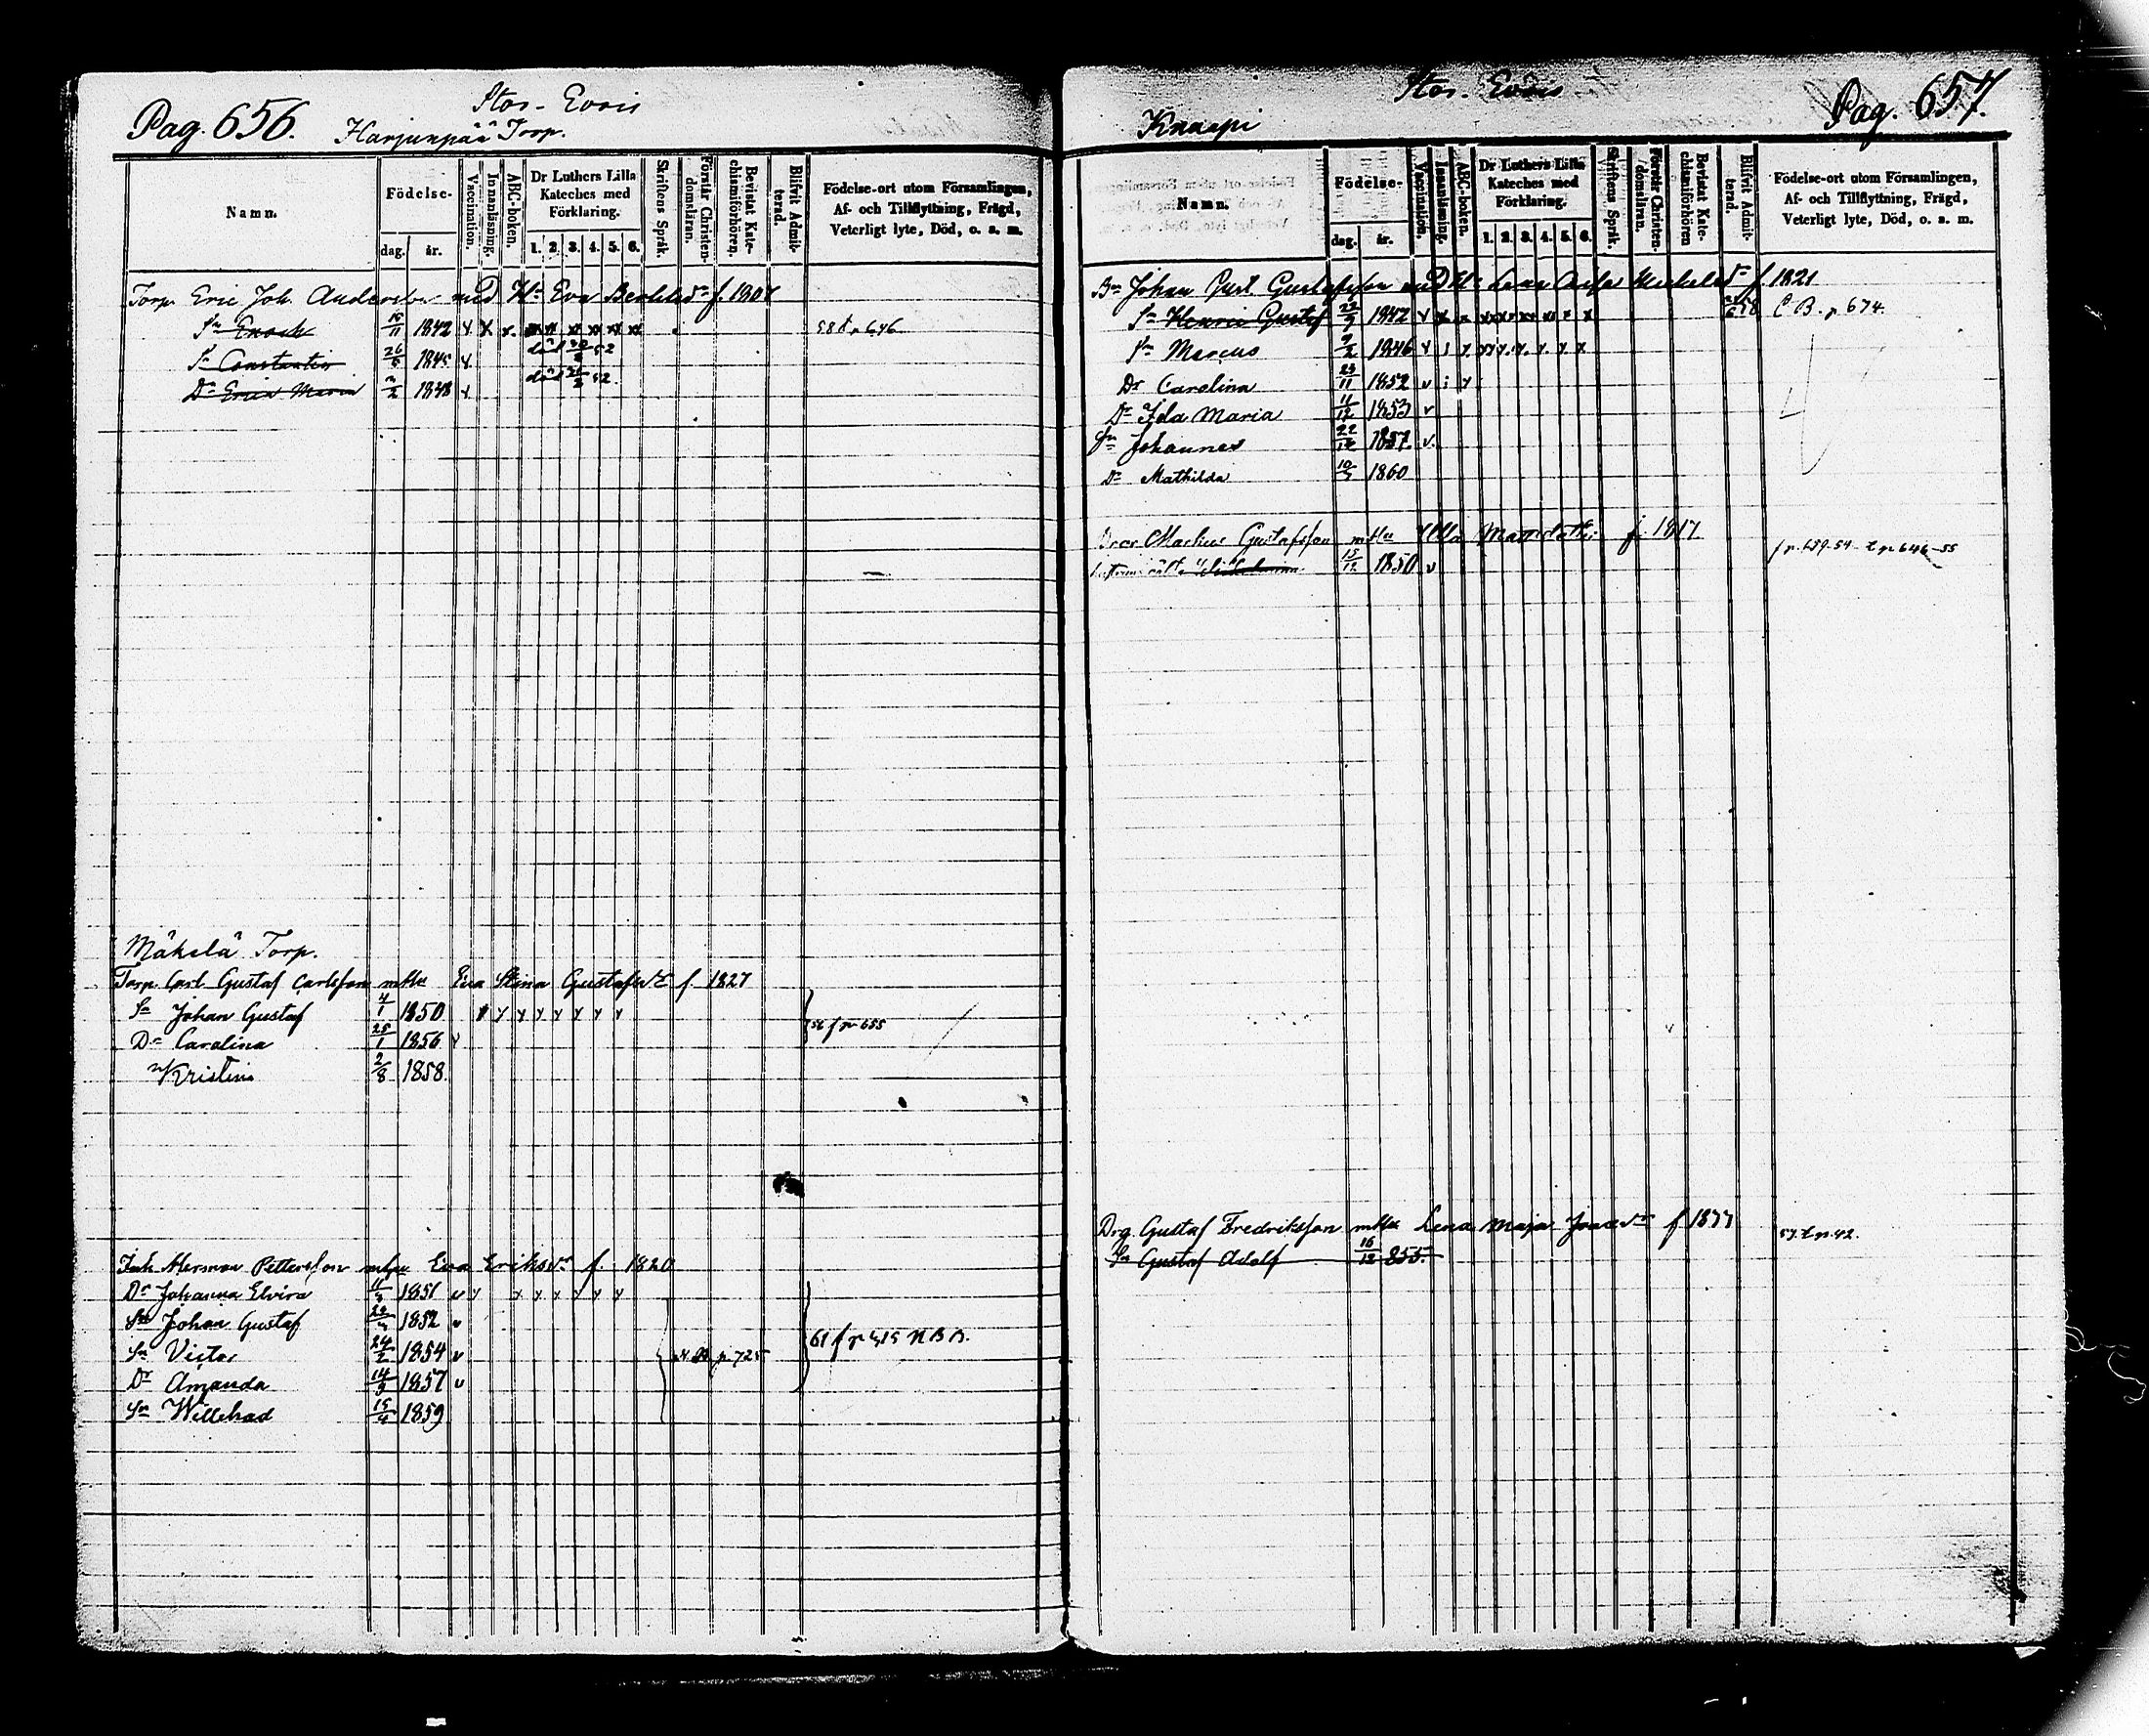 Pag. 656.
Stor-Evois
Harjunpää Torp.
Namn.
Födelse-
dag.
år.
Vaccination.
Innanläsning.
ABC-boken.
Dr Luthers Lilla Kateches med Förklaring.
1. 2. 3. 4. 5. 6.
Skriftens Språk.
Förstår Christen-domsläran.
Bevistat Kate-chismiförhören.
Blifvit Admit-terad.
Födelse-ort utom Församlingen, Af- och Tillflyttning, Frägd, Veterligt lyte, Död, o. s. m.
Torp. Eric Joh. Andersson med Hu Eva f. 1807
Sn Enoch 1842 58 t. p. 646
Sn Constantin 26/5 1845 död 52
Dr Erica Maria 2/2 1848 död 52
Mäkelä Torp.
Torp. Carl Gustaf Carlsson mHu Eva Stina Gustafsdr f. 1827
Sn Johan Gustaf 4/1 1850
56 f p 655
Dr Carolina 25/1 1856
Kristina 2/8 1858
Inh. Herman Pettersson mHu Eva Eriksdr f. 1820
Dr Johanna Elvira 1851
Sn Johan Gustaf 1852
61 f p 515 NBB.
Sn Victor 24/2 1854 N.B. p. 725
Dr Amanda 14/3 1857
Sn Willehad 15/4 1859
Stor-Evois
Pag. 657.
Knaapi
Namn.
Födelse-
dag.
år.
Vaccination.
Innanläsning.
ABC-boken.
Dr Luthers Lilla Kateches med Förklaring.
1. 2. 3. 4. 5. 6.
Skriftens Språk.
Förstår Christen-domsläran.
Bevistat Kate-chismiförhören
Blifvit Admit-terad.
Födelse-ort utom Församlingen, Af- och Tillflyttning, Frägd, Veterligt lyte, Död, o. s. m.
Bn Johan Gust. Gustafsson med Hu Lena Michelsdr f. 1821
Sn Henric Gustaf 1842 C B. p 674.
Sn Marcus 9/2 1846
Dr Carolina 23/11 1852
Dr Ida Maria 11/12 1853
Sn Johannes 22/12 1857
Dr Mathilda 1860
Bror Markus Gustafsson mHu Ulla f. 1817
f p. 659-54 - t p 646-55
15/12 1850
Drg. Gustaf Fredriksson mHu Lena Maja f 1833
57 t p. 42.
Sn Gustaf Adolf 16/12 855.